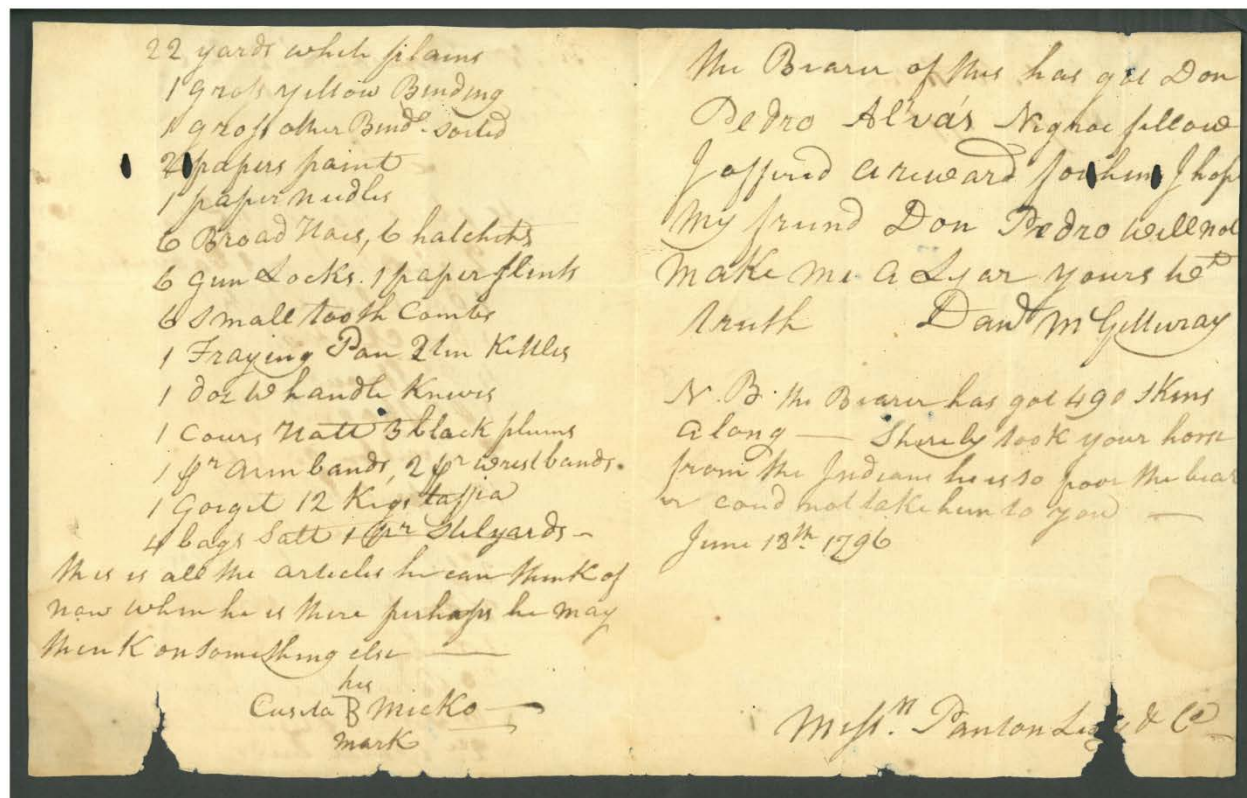 22 yards white plains
1 gross yellow Binding
1 gross other Bind.g sorted
2 papers paint
1 paper needles
6 Broad Hoes, 6 hatchets
6 gun Locks. 1 paper flints
6 Small tooth Combs
1 Fraying Pan 2 tin Kittles
1 doz W handle Knives
1 Cours Hatt 3 black plums
1 pr arm bands, 2 pr wrest bands.
1 Gorget 12 Kegs taffia
4 bags Satt 1 pr Stilyards -
this is all the articles he can think of
now when he is there perhaps he may
think on something else —
his
Cusita B Micko —
mark
the Bearer of this has got Don
Pedro Alva's Negroe fellow
I offered a reward for him I hope
my friend Don Pedro will not
make me a Lyar yours wt
truth Danl McGillivray
N. B. the Bearer has got 490 skins
along — Sherely took your horse
from the Indians he is so poor the bear
er coud not take him to you —
June 13th 1796
Messrs. Panton & Co